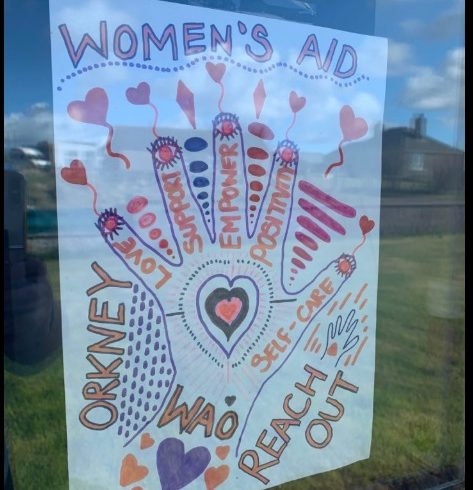 WOMEN'S AID
LOVE
SUPPORT
EMPOWER
POSITIVITY
SELF-CARE
ORKNEY
WAO
REACH
OUT